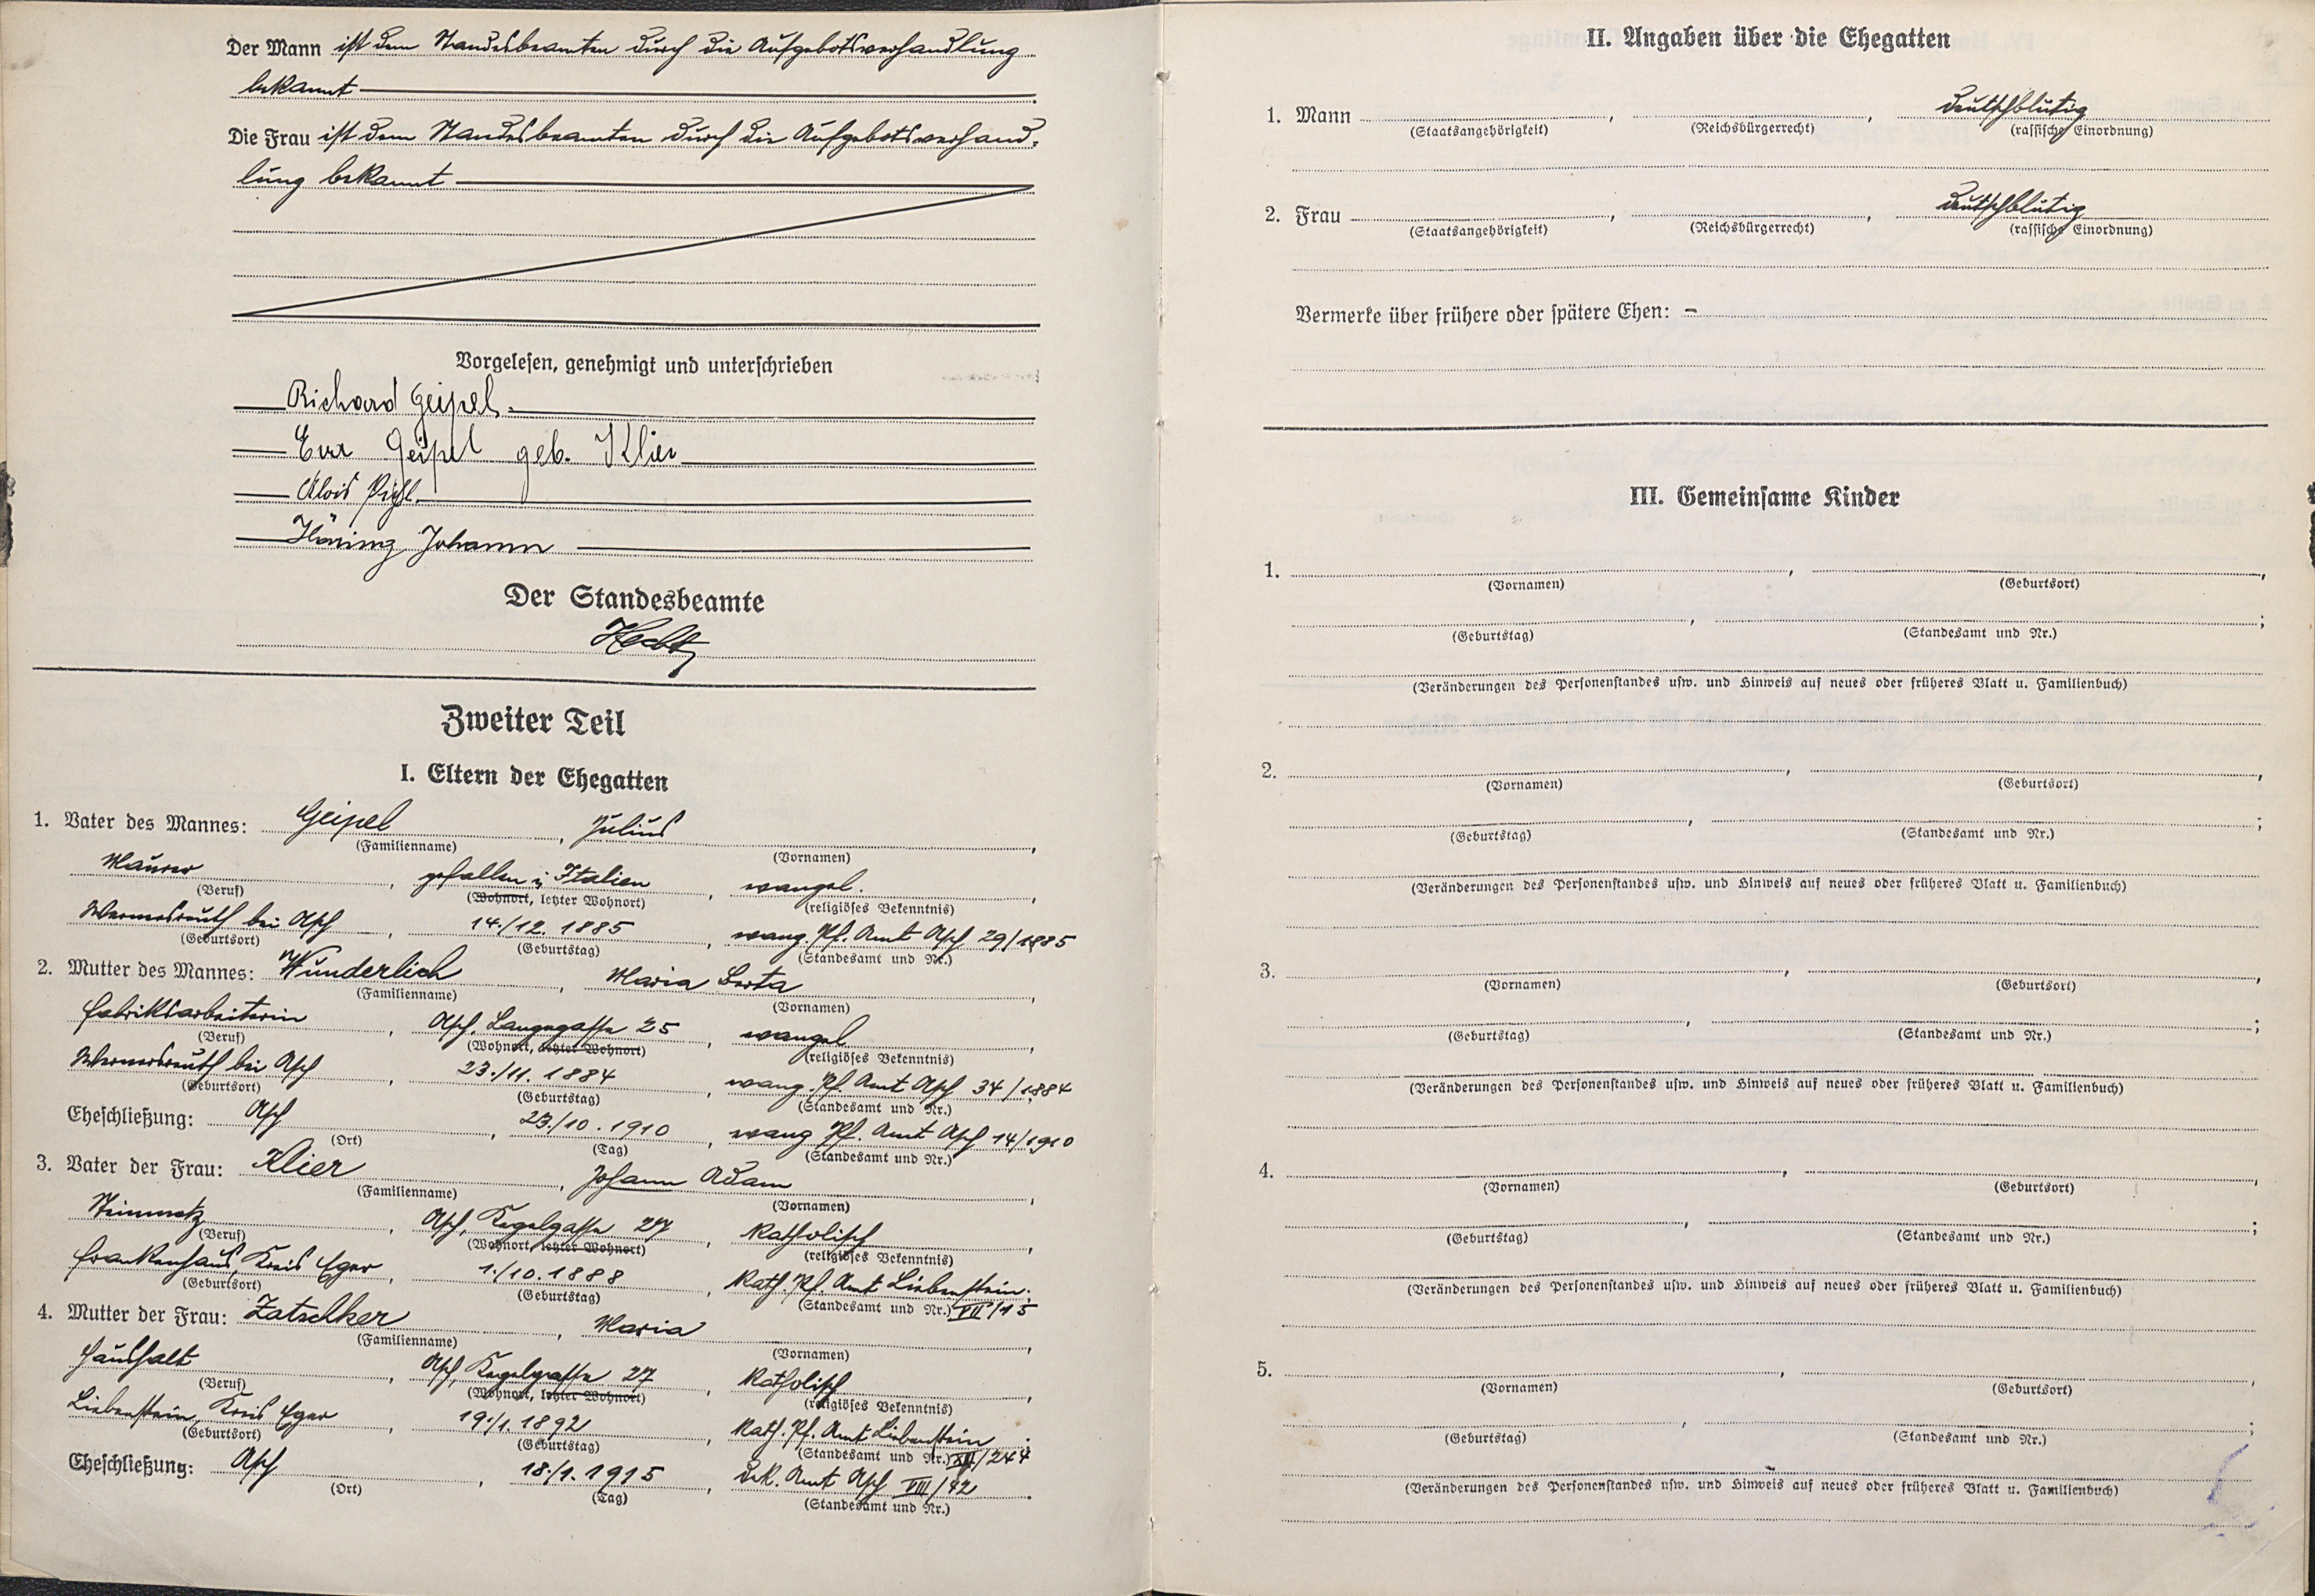 Der Mann ist dem Standesbeamten durch die Aufgebotsverhandlung
bekannt
Die Frau ist dem Standesbeamten durch die Aufgebotsverhand-
lung bekannt
Vorgelesen, genehmigt und unterschrieben
Richard Geipel.
Eva Geipel geb. Klier
Alois
Johann
Der Standesbeamte
Zweiter Teil
I. Eltern der Ehegatten
1. Vater des Mannes: Geipel, Julius,
(Familienname) (Vornamen)
Maurer, gefallen i. Italien, evangel.,
(Beruf) (Wohnort, letzter Wohnort) (religiöses Bekenntnis)
Wernersreuth bei Asch, 14./12. 1885, evang. Pf. Amt Asch 29/1885
(Geburtsort) (Geburtstag) (Standesamt und Nr.)
2. Mutter des Mannes: Wunderlich, Maria Berta,
(Familienname) (Vornamen)
Fabriksarbeiterin, Asch, Langegasse 25, evangel,
(Beruf) (Wohnort, letzter Wohnort) (religiöses Bekenntnis)
Wernersreuth bei Asch, 23./11. 1884, evang. Pf. Amt Asch 34/1884
(Geburtsort) (Geburtstag) (Standesamt und Nr.)
Eheschließung: Asch, 23./10. 1910, evang Pf. Amt Asch 14/1910
(Ort) (Tag) (Standesamt und Nr.)
3. Vater der Frau: Klier, Johann Adam,
(Familienname) (Vornamen)
Steinmetz, Asch, Kegelgasse 27, Katholisch,
(Beruf) (Wohnort, letzter Wohnort) (religiöses Bekenntnis)
Frankenhaus, Kreis Eger, 1./10. 1888, Kath. Pf. Amt Liebenstein;
(Geburtsort) (Geburtstag) (Standesamt und Nr.) VII/15
4. Mutter der Frau: Zatschker, Maria,
(Familienname) (Vornamen)
Haushalt, Asch, Kegelgasse 27, Katholisch,
(Beruf) (Wohnort, letzter Wohnort) (religiöses Bekenntnis)
Liebenstein, Kreis Eger, 19./1. 1892, Kath. Pf. Amt Liebenstein;
(Geburtsort) (Geburtstag) (Standesamt und Nr.) /244
Eheschließung: Asch, 18./1. 1915, Dek. Amt Asch VIII/42.
(Ort) (Tag) (Standesamt und Nr.)
II. Angaben über die Ehegatten
1. Mann , , deutschblütig
(Staatsangehörigkeit) (Reichsbürgerrecht) (rassische Einordnung)
2. Frau , , deutschblütig
(Staatsangehörigkeit) (Reichsbürgerrecht) (rassische Einordnung)
Vermerke über frühere oder spätere Ehen: –
III. Gemeinsame Kinder
1. , ,
(Vornamen) (Geburtsort)
, ;
(Geburtstag) (Standesamt und Nr.)
(Veränderungen des Personenstandes usw. und Hinweis auf neues oder früheres Blatt u. Familienbuch)
2. , ,
(Vornamen) (Geburtsort)
, ;
(Geburtstag) (Standesamt und Nr.)
(Veränderungen des Personenstandes usw. und Hinweis auf neues oder früheres Blatt u. Familienbuch)
3. , ,
(Vornamen) (Geburtsort)
, ;
(Geburtstag) (Standesamt und Nr.)
(Veränderungen des Personenstandes usw. und Hinweis auf neues oder früheres Blatt u. Familienbuch)
4. , ,
(Vornamen) (Geburtsort)
, ;
(Geburtstag) (Standesamt und Nr.)
(Veränderungen des Personenstandes usw. und Hinweis auf neues oder früheres Blatt u. Familienbuch)
5. , ,
(Vornamen) (Geburtsort)
, ;
(Geburtstag) (Standesamt und Nr.)
(Veränderungen des Personenstandes usw. und Hinweis auf neues oder früheres Blatt u. Familienbuch)